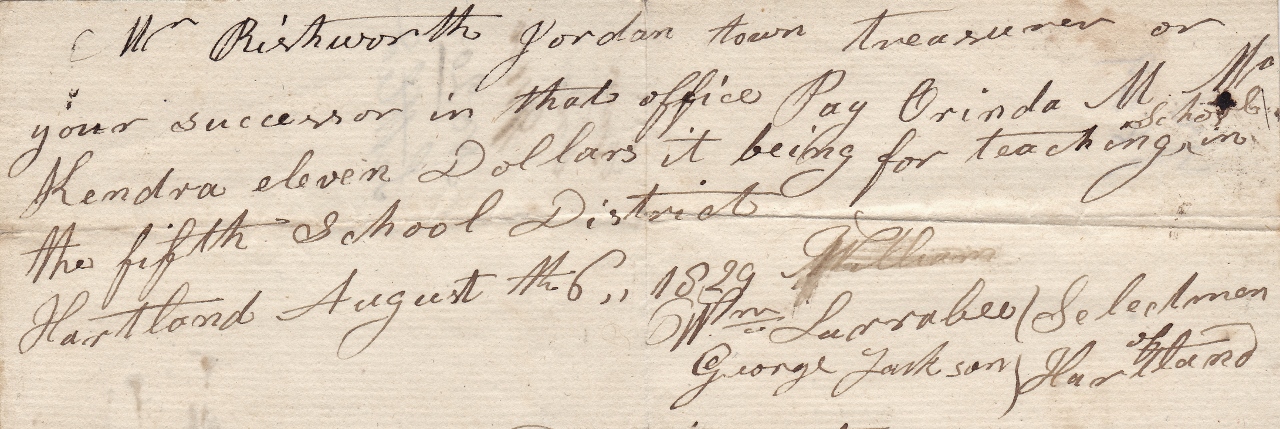 Mr Rishworth Jordan town treasurer or
your successor in that office Pay Orinda M Mc
Kendra eleven Dollars it being for teaching School in
the fifth School District
Hartland August th 6,, 1829 William
Wm Larrabee } Selectmen
George Jackson } of Hartland